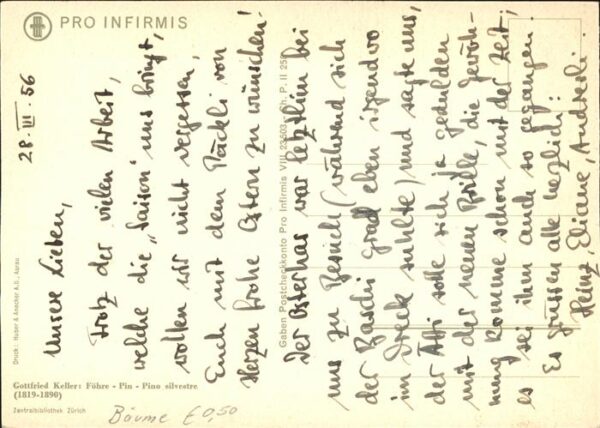 PRO INFIRMIS
28. III. 56
Unsere Lieben,
Trotz der vielen Arbeit,
welche die „Saison" uns bringt,
wollen wir nicht vergessen,
Euch mit dem Päckli von
Herzen frohe Ostern zu wünschen!
Der Osterhas war letzthin bei
uns zu Besuch (während sich
der Baschi grad eben irgendwo
im Dreck suhlte) und sagte uns,
der Ätti solle sich ja gedulden
mit der neuen Brille, die Gewöh-
nung komme schon mit der Zeit;
es sei ihm auch so gegangen.
Es grüssen alle herzlich:
Heinz, Eliane, Andresli.
Gaben Postcheckkonto Pro Infirmis VIII 23503 - Ph. P. II 255
Druck: Huber & Anacker A.G., Aarau
Gottfried Keller: Föhre - Pin - Pino silvestre
(1819-1890)
Zentralbibliothek Zürich
Bäume € 0,50